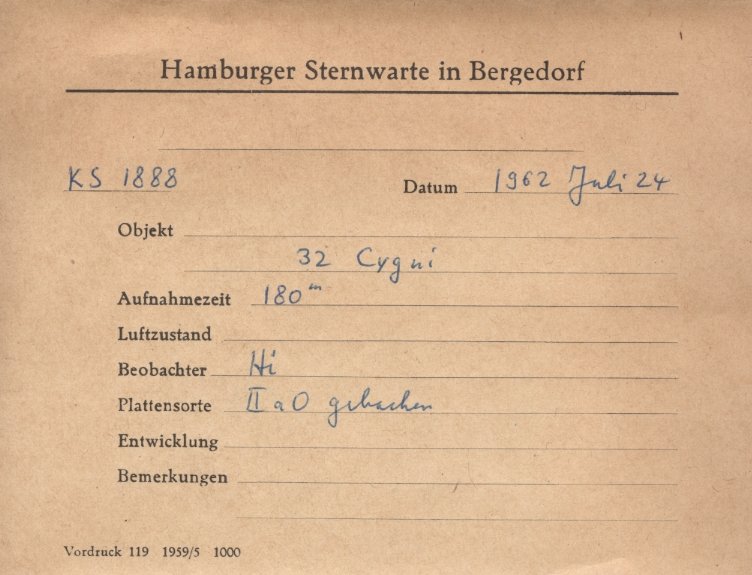 Hamburger Sternwarte in Bergedorf
KS 1888 Datum 1962 Juli 24
Objekt
32 Cygni
Aufnahmezeit 180ᵐ
Luftzustand
Beobachter Hi
Plattensorte II a O gebacken
Entwicklung
Bemerkungen
Vordruck 119 1959/5 1000